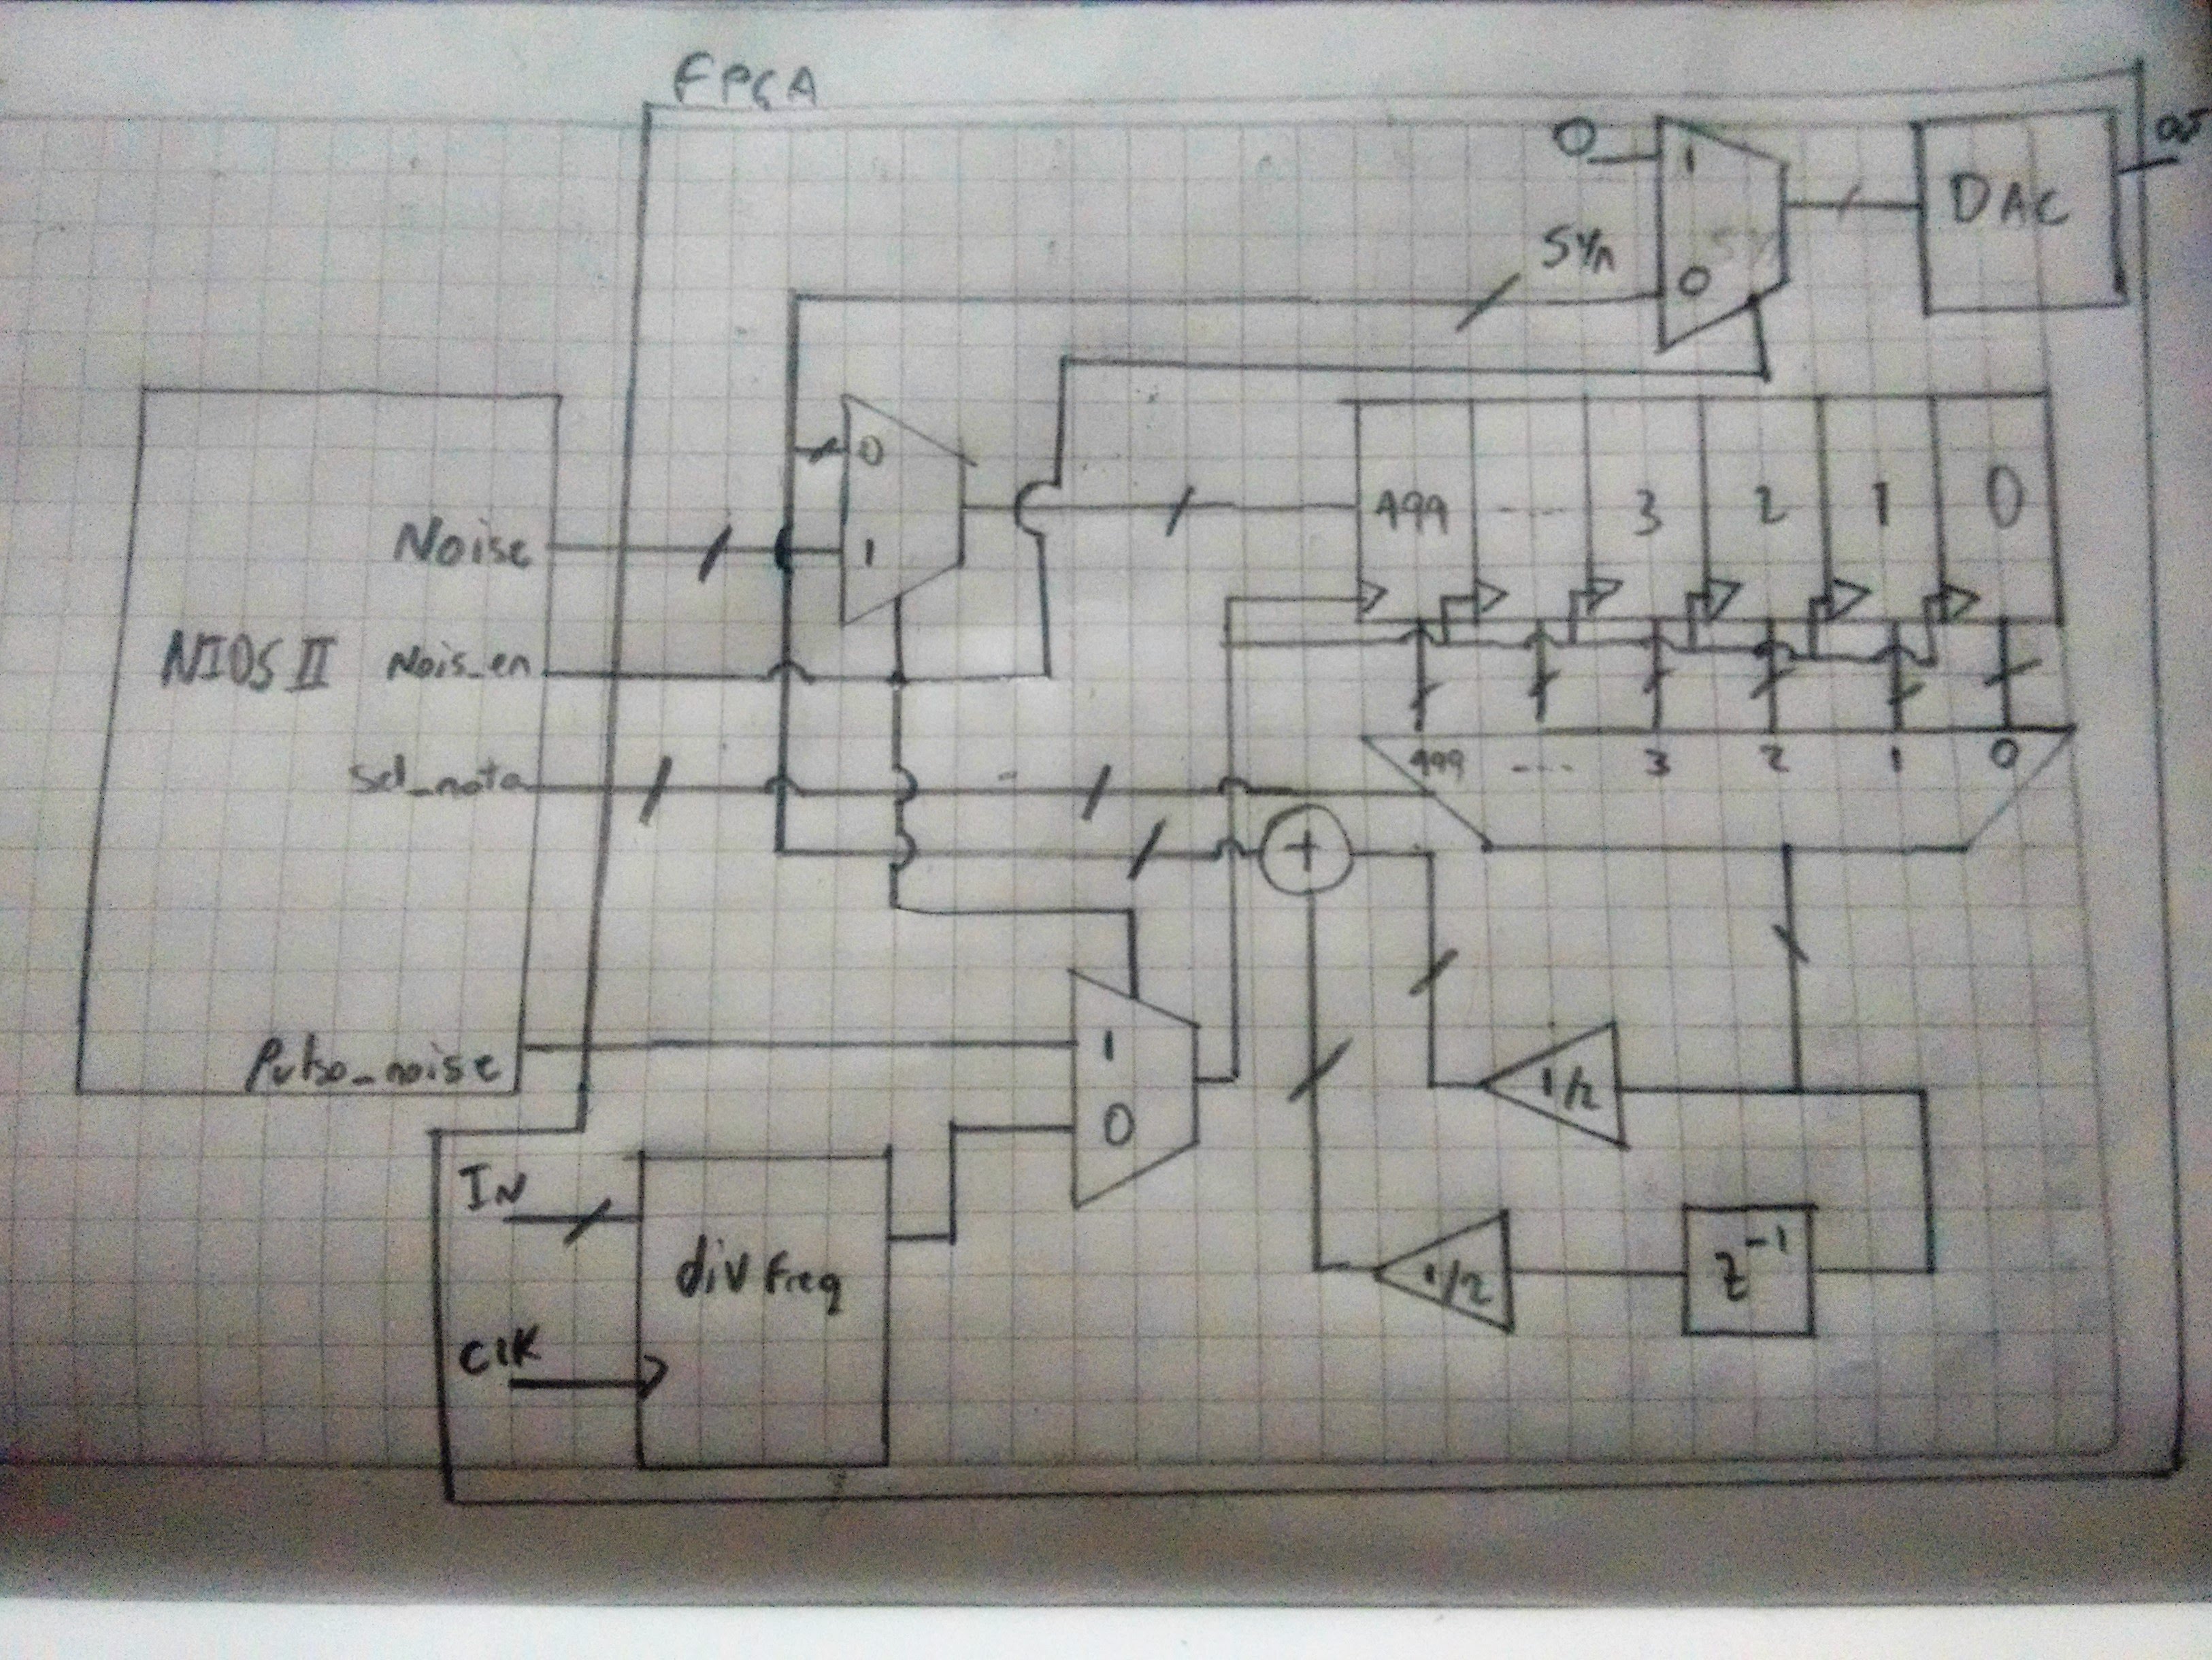 FPGA
0
1
Syn
0
DAC
0
499 --- 3 2 1 0
Noise
1
NIOS II
Nois_en
sel_nota
499 --- 3 2 1 0
+
Pulso_noise
1
1/2
0
IN
div Freq
1/2
z^-1
ClK